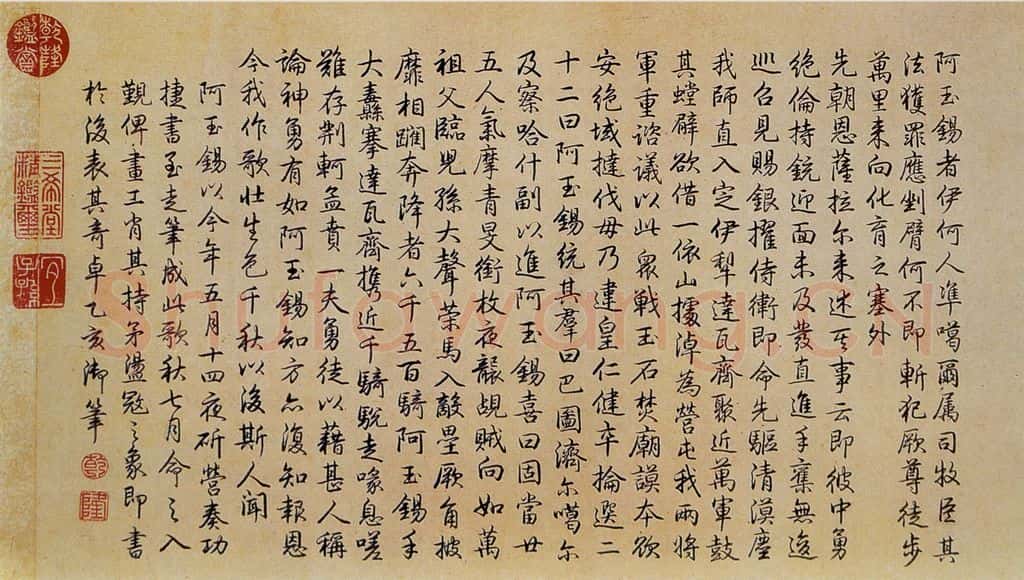 阿玉錫者伊何人準噶爾属司牧臣其
法獲罪應剉臂何不即斬犯厥尊徒步
萬里来向化育之塞外
先朝恩薩拉尔来述其事云即彼中勇
絶倫持銃迎面未及發直進手奪無逡
巡召見賜銀擢侍衛即命先驅清漠塵
我師直入定伊犁達瓦齊聚近萬軍鼓
其螳臂欲借一依山據淖為營屯我兩將
軍重諮議以此衆戰玉石焚廟謨本欲
安絶域撻伐毋乃違皇仁健卒掄選二
十二曰阿玉錫統其羣曰巴圖濟尔噶尔
及察哈什副以進阿玉錫喜曰固當廿
五人氣摩青旻銜枚夜襲覘賊向如萬
祖父臨児孫大聲策馬入敵壘厥角披
靡相躙奔降者六千五百騎阿玉錫手
大纛搴達瓦齊携近千騎駾走喙息嗟
難存荆軻孟賁一夫勇徒以藉甚人稱
論神勇有如阿玉錫知方亦復知報恩
今我作歌壯生色千秋以後斯人聞
阿玉錫以今年五月十四夜斫營奏功
捷書至走筆成此歌秋七月命之入
覲俾畫工肖其持矛盪寇之象即書
於後表其奇卓乙亥御筆
乾
隆
乾隆鑑賞
三希堂精鑑璽
宜子孫
Shufawang.CN